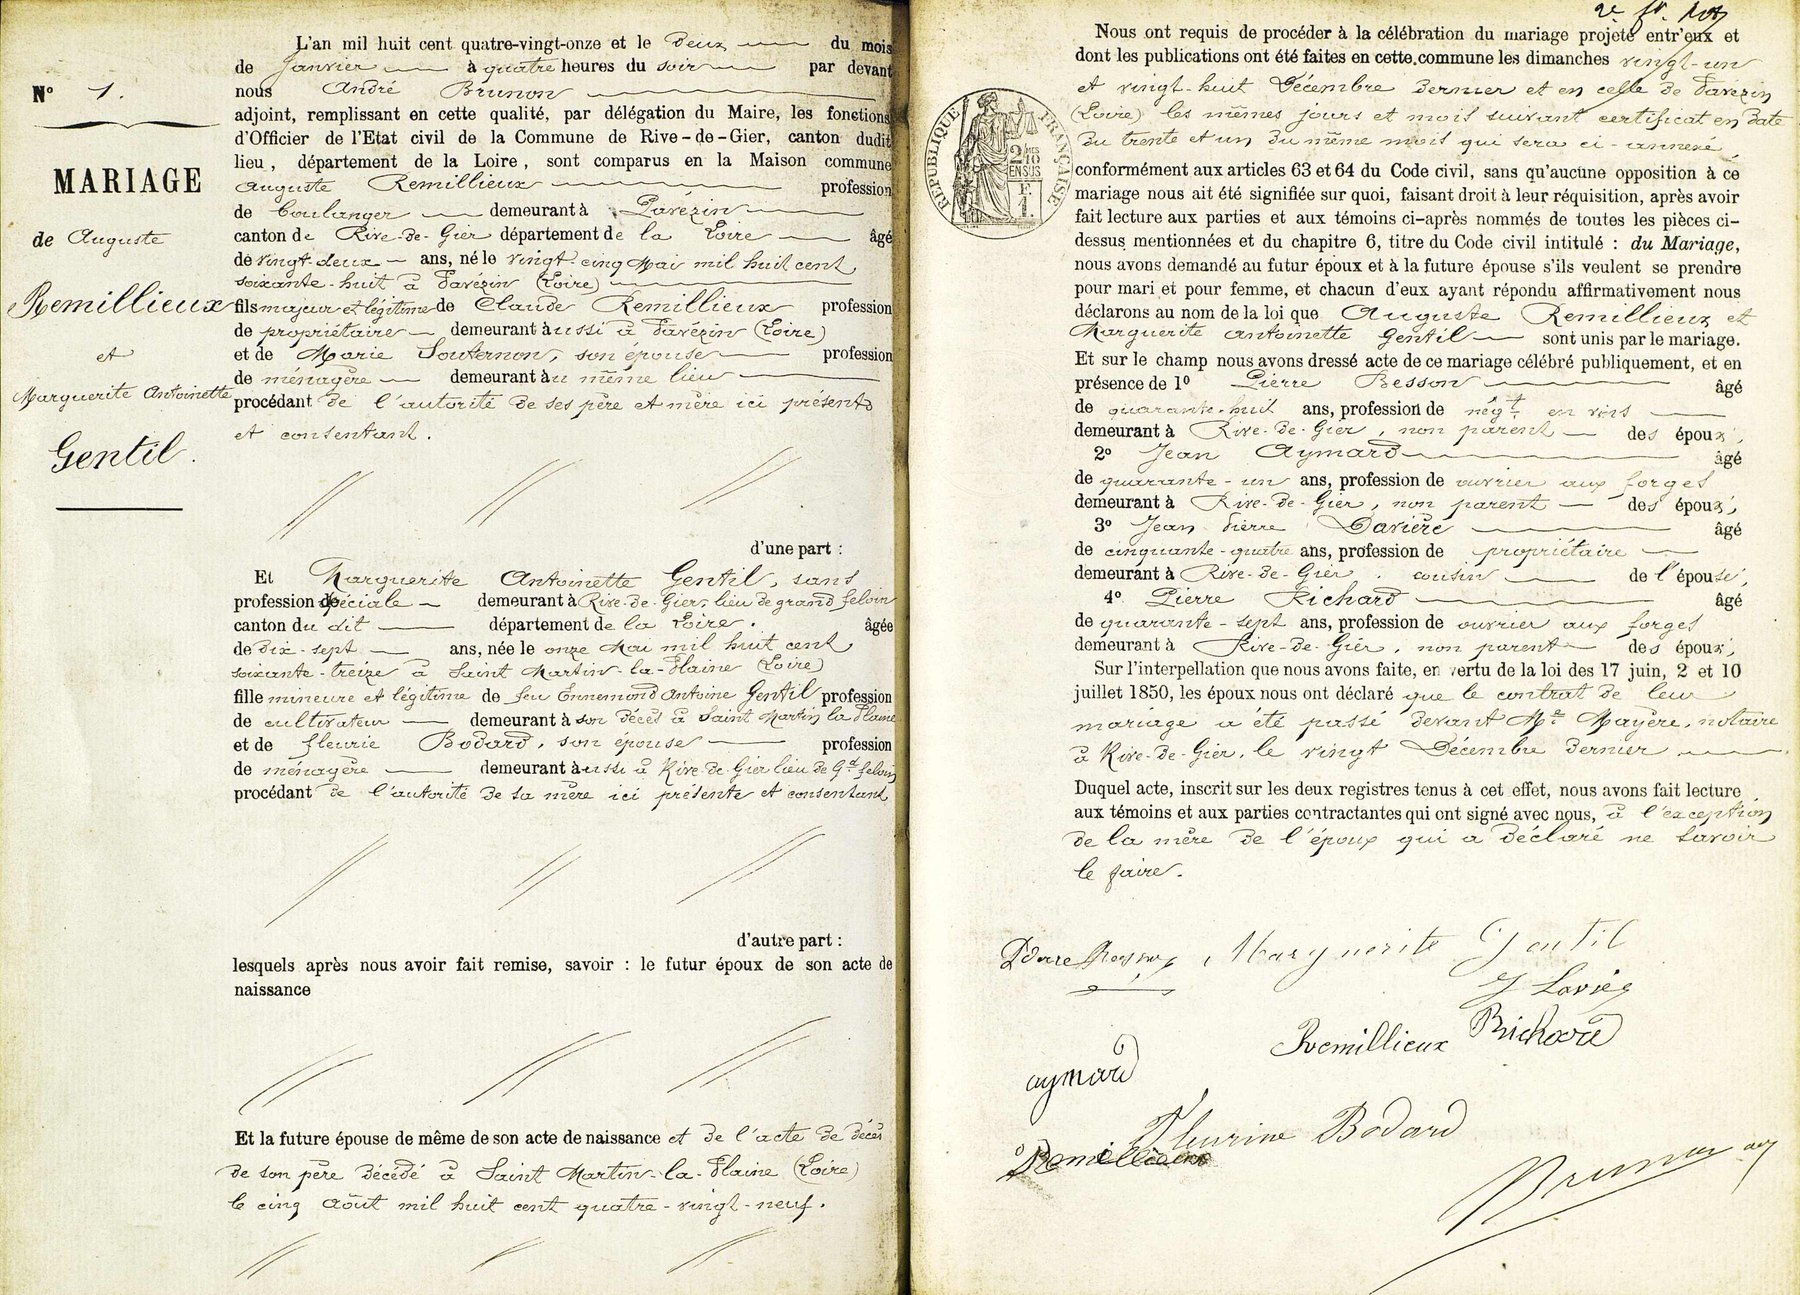 N° 1.
MARIAGE
de Auguste
Remillieux
et
Marguerite Antoinette
Gentil.
L'an mil huit cent quatre-vingt-onze et le deux du mois
de Janvier à quatre heures du soir par devant
nous André Brunon
adjoint, remplissant en cette qualité, par délégation du Maire, les fonctions
d'Officier de l'Etat civil de la Commune de Rive-de-Gier, canton dudit
lieu, département de la Loire, sont comparus en la Maison commune
Auguste Remillieux profession
de boulanger demeurant à Pavézin
canton de Rive-de-Gier département de la Loire âgé
de vingt-deux ans, né le vingt-cinq Mai mil huit cent
soixante-huit à Pavézin (Loire)
fils majeur et légitime de Claude Remillieux profession
de propriétaire demeurant aussi à Pavézin (Loire)
et de Marie Souternon, son épouse profession
de ménagère demeurant au même lieu
procédant de l'autorité de ses père et mère ici présents
et consentant.
d'une part :
Et Marguerite Antoinette Gentil, sans
profession spéciale demeurant à Rive-de-Gier, lieu de grand feloin
canton du dit département de la Loire. âgée
de dix-sept ans, née le onze Mai mil huit cent
soixante-treize à Saint Martin-la-Plaine (Loire)
fille mineure et légitime de feu Ennemond Antoine Gentil profession
de cultivateur demeurant à son décès à Saint Martin la Plaine
et de fleurie Bodard, son épouse profession
de ménagère demeurant aussi à Rive-de-Gier lieu de Gd feloin
procédant de l'autorité de sa mère ici présente et consentant
d'autre part :
lesquels après nous avoir fait remise, savoir : le futur époux de son acte de
naissance
Et la future épouse de même de son acte de naissance et de l'acte de décès
de son père décédé à Saint Martin-la-Plaine (Loire)
le cinq Août mil huit cent quatre-vingt-neuf.
2e ft.
RÉPUBLIQUE FRANÇAISE
2/10
EN SUS
F.
1
Nous ont requis de procéder à la célébration du mariage projeté entr'eux et
dont les publications ont été faites en cette commune les dimanches vingt-un
et vingt-huit Décembre dernier et en celle de Pavézin
(Loire) les mêmes jours et mois suivant certificat en date
du trente et un du même mois qui sera ci-annexé,
conformément aux articles 63 et 64 du Code civil, sans qu'aucune opposition à ce
mariage nous ait été signifiée sur quoi, faisant droit à leur réquisition, après avoir
fait lecture aux parties et aux témoins ci-après nommés de toutes les pièces ci-
dessus mentionnées et du chapitre 6, titre du Code civil intitulé : du Mariage,
nous avons demandé au futur époux et à la future épouse s'ils veulent se prendre
pour mari et pour femme, et chacun d'eux ayant répondu affirmativement nous
déclarons au nom de la loi que Auguste Remillieux et
Marguerite Antoinette Gentil sont unis par le mariage.
Et sur le champ nous avons dressé acte de ce mariage célébré publiquement, et en
présence de 1° Pierre Besson âgé
de quarante-huit ans, profession de négt. en vins
demeurant à Rive-de-Gier, non parent des époux,
2° Jean Aymard âgé
de quarante-un ans, profession de ouvrier aux forges
demeurant à Rive-de-Gier, non parent des époux,
3° Jean Pierre Darière âgé
de cinquante-quatre ans, profession de propriétaire
demeurant à Rive-de-Gier. cousin de l'épouse,
4° Pierre Richard âgé
de quarante-sept ans, profession de ouvrier aux forges
demeurant à Rive-de-Gier, non parent des époux,
Sur l'interpellation que nous avons faite, en vertu de la loi des 17 juin, 2 et 10
juillet 1850, les époux nous ont déclaré que le contrat de leur
mariage a été passé devant Me Mayère, notaire
à Rive-de-Gier, le vingt Décembre dernier
Duquel acte, inscrit sur les deux registres tenus à cet effet, nous avons fait lecture
aux témoins et aux parties contractantes qui ont signé avec nous, à l'exception
de la mère de l'époux qui a déclaré ne savoir
le faire.
Marguerite Gentil
Richard
Remillieux
aymard
Fleurine Bodard
Remillieux
Brunon adj